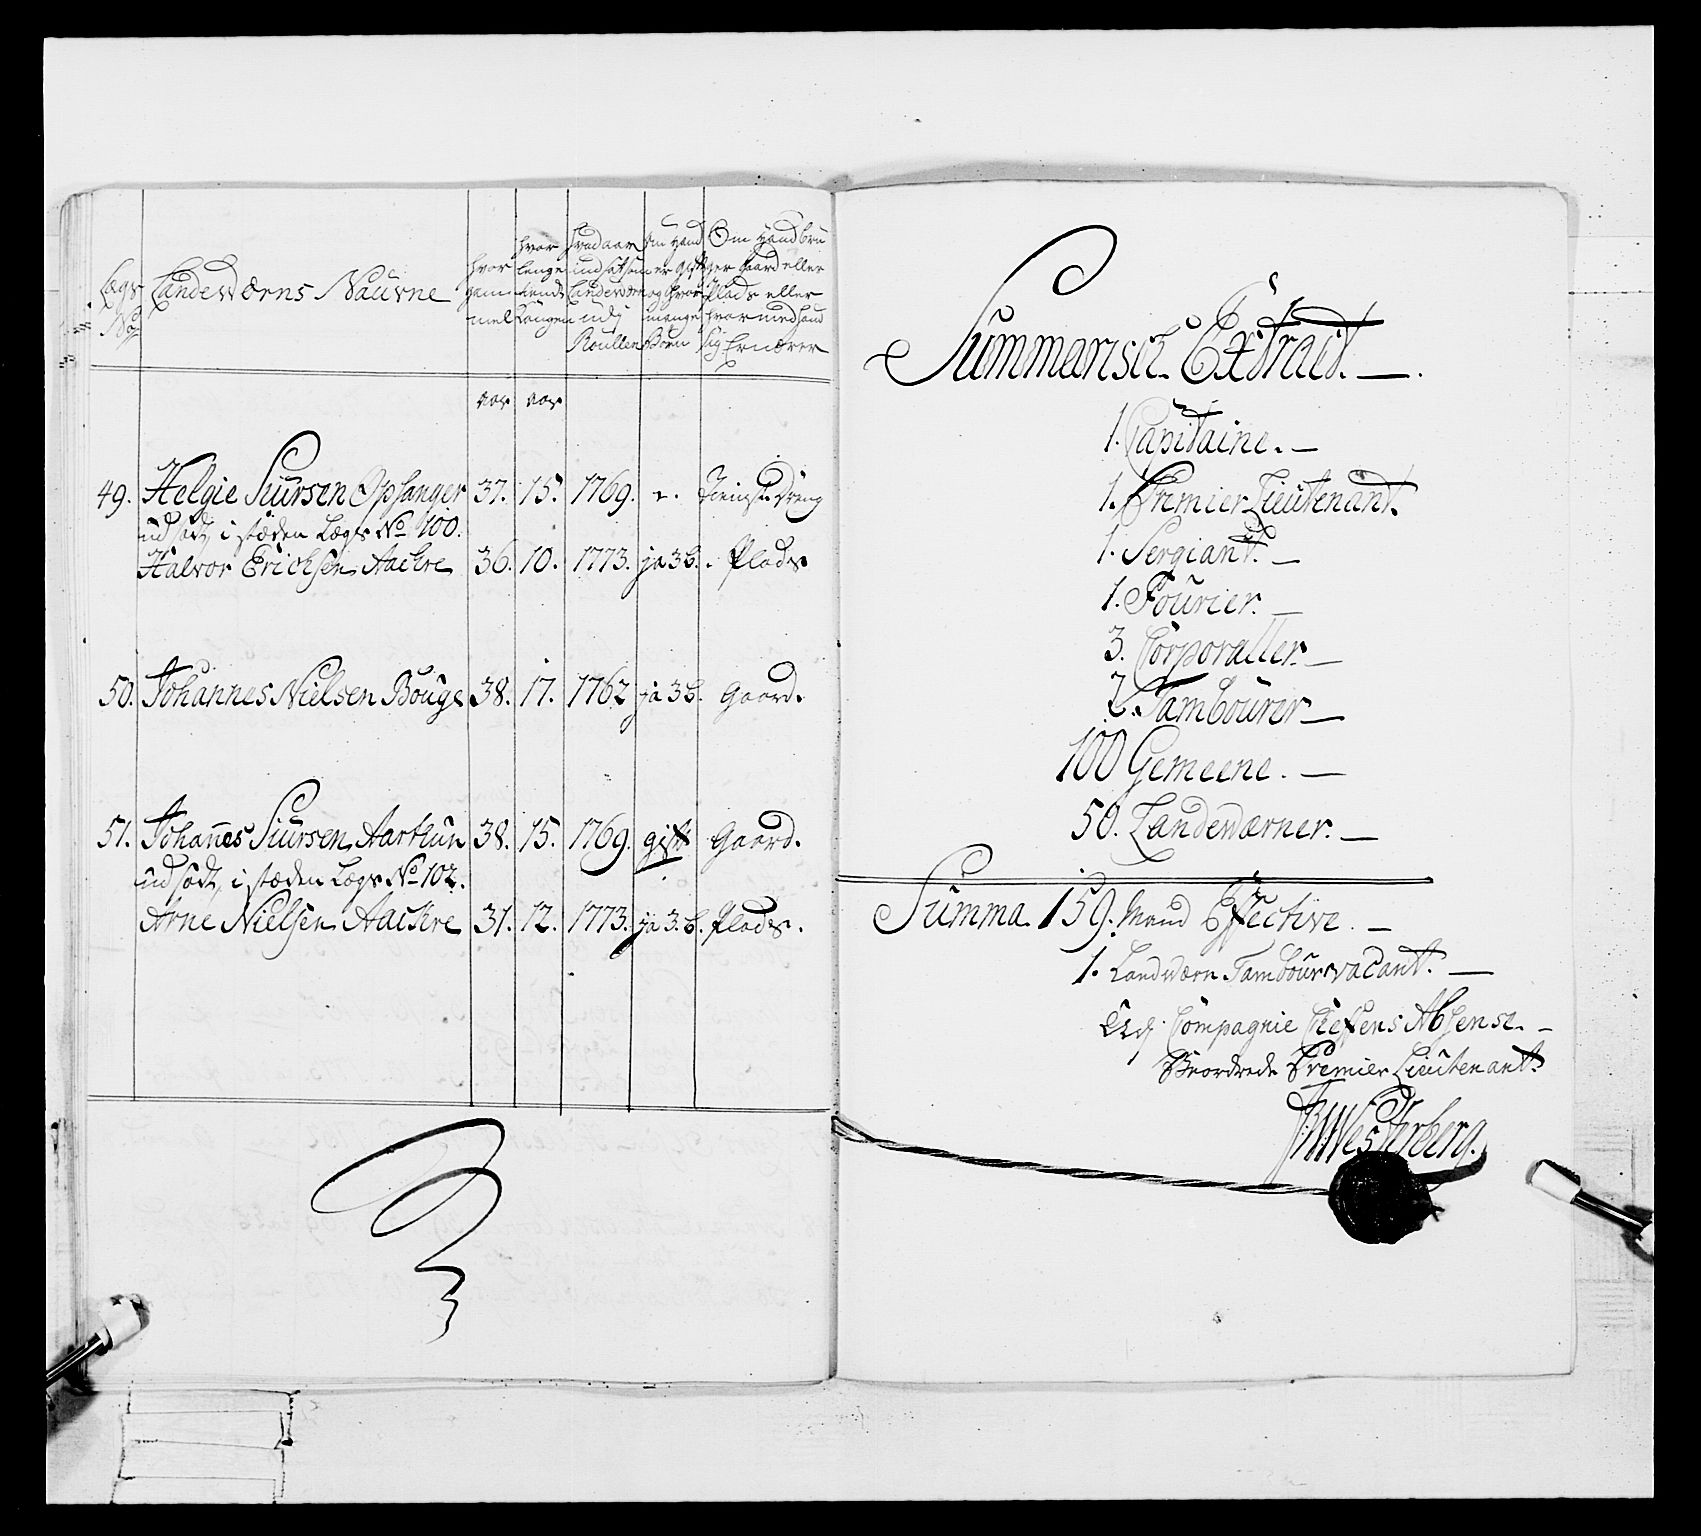 Lægs No
Landeværns Nauvne
hvor gammel
hvor lenge tiendt Kongen
hvad aar indsat som Landeværn udi Roullen
Om hand er gift og hvor mange Børn
Om hand bruger Gaard eller Plads eller hvor med hand sig Ernærer
aar aar
49. Helgie Siursen Opsanger 37. 15. 1769. Tienist Dreng
udsødt, i stæden Lægs No 100.
Halvor Erichsen Aackre 36. 10. 1773. ja 3 b. Plads
50. Johannes Nielsen Bouge 38. 17. 1762 ja 3 b. Gaard.
51. Johanes Siursen Aarthun 38. 15. 1769. gift Gaard.
udsødt, i stæden Lægs No 102.
Arne Nielsen Aackre 31. 12. 1773. ja 3. b. Plads.
Summarisch Extract. —.
1. Capitaine. —
1. Premier Lieutenant.
1. Sergiant. —
1. Fourier. —
3. Corporaller. —
2. Tambourer —
100 Gemeene. —
50. Landeværner. —
Summa 159. Mand Effective. —
1. Landværn Tambour vacant. —
Compagnie Cheffens Absence. —
Beordrede Premier Lieutenant
Westerberg.